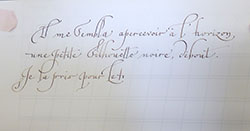 Il me sembla apercevoir à l'horizon,
une petite silhouette noire, debout.
Je la pris pour Lol.